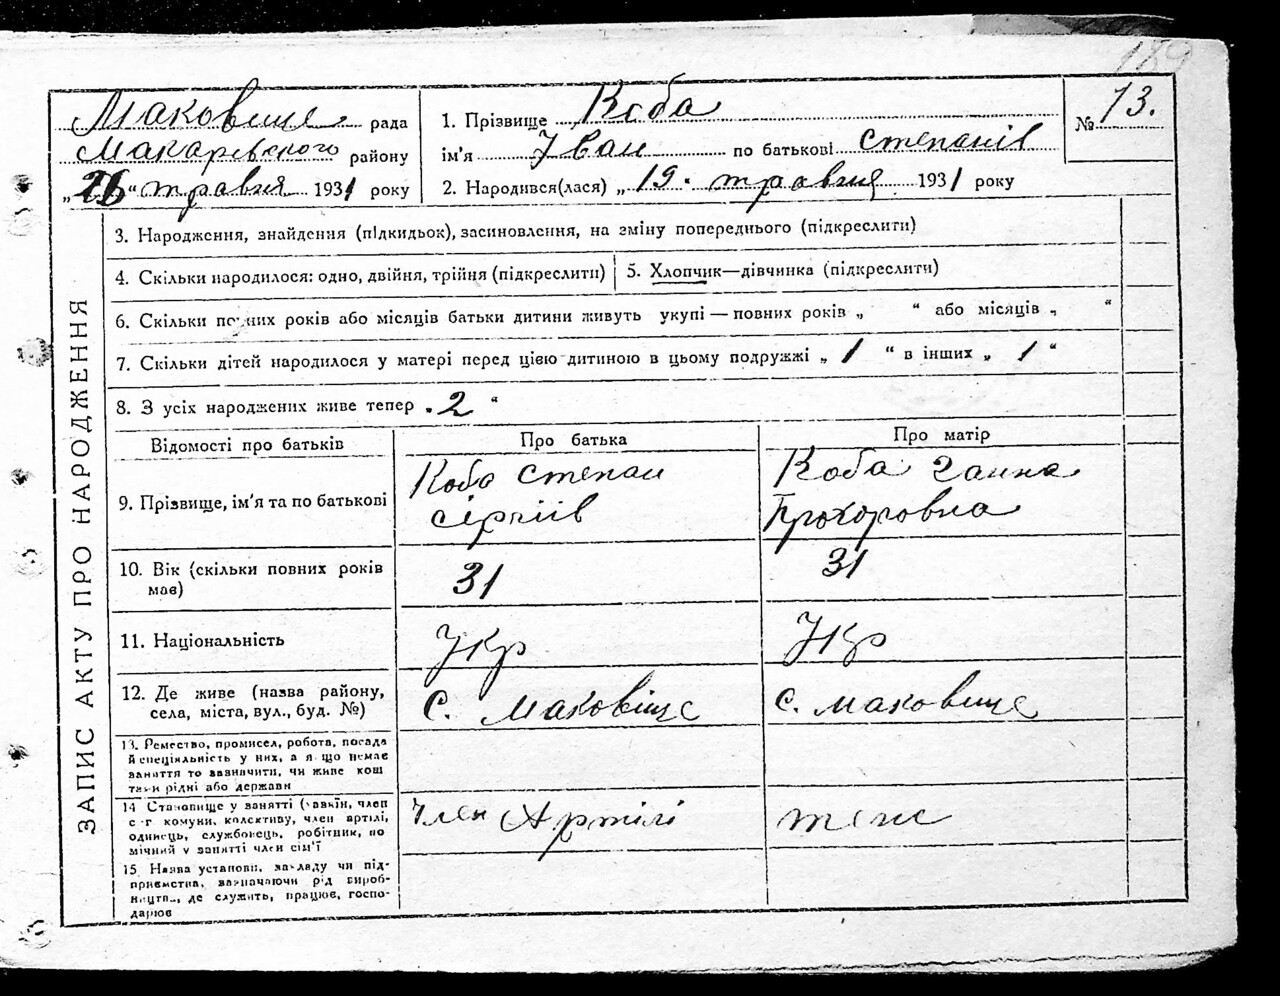 189
Маковище рада
Макарівского району
„26“ травня 1931 року
1. Прізвище Коба
ім'я Іван по батькові Степанів
2. Народився(лася) „19. травня 1931 року
№ 13.
ЗАПИС АКТУ ПРО НАРОДЖЕННЯ
3. Народження, знайдення (підкидьок), засиновлення, на зміну попереднього (підкреслити)
4. Скільки народилося: одно, двійня, трійня (підкреслити)
5. Хлопчик—дівчинка (підкреслити)
6. Скільки повних років або місяців батьки дитини живуть укупі — повних років „ “ або місяців „ “
7. Скільки дітей народилося у матері перед цією дитиною в цьому подружжі „ 1 “ в інших „ 1 “
8. З усіх народжених живе тепер „ 2 “
Відомості про батьків
Про батька
Про матір
9. Прізвище, ім'я та по батькові
Коба Степан
Сергіів
Коба Ганна
Прохоровна
10. Вік (скільки повних років
має)
31
31
11. Національність
Укр
Укр
12. Де живе (назва району,
села, міста, вул., буд. №)
С. Маковіще
С. Маковище
13. Ремество, промисел, робота, посада
й спеціяльність у них, а я що немає
заняття то зазначити, чи живе кош
тами рідні або держави
14 Становище у занятті (хазяїн, член
с-г комуни, колективу, член артілі,
одинець, службовець, робітник, по
мічний у занятті член сім'ї
Член Артілі
теж
15. Назва установи, закладу чи під-
приємства, зазначаючи рід вироб-
ництва, де служить, працює, госпо-
дарює